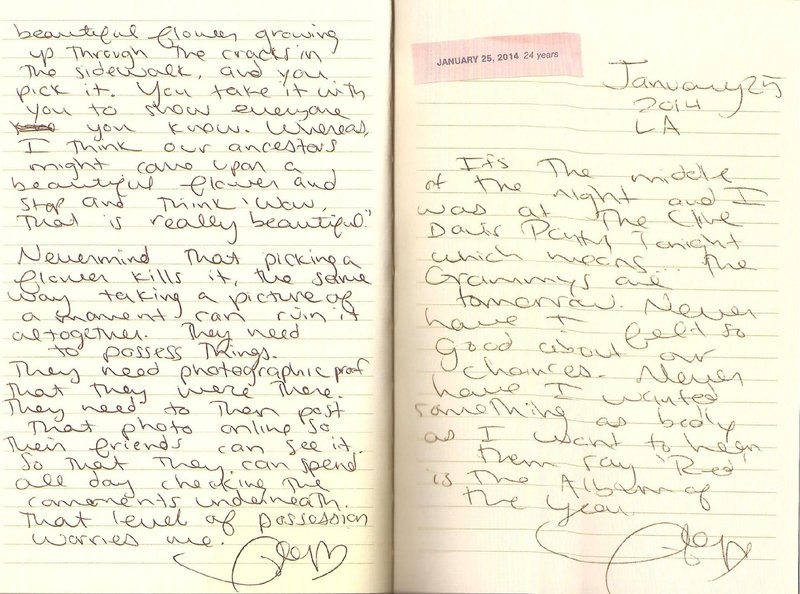 beautiful flower growing
up through the cracks in
the sidewalk, and you
pick it. You take it with
you to show everyone
you know. Whereas,
I think our ancestors
might come upon a
beautiful flower and
stop and think "Wow,
that is really beautiful."
Nevermind that picking a
flower kills it, the same
way taking a picture of
a moment can ruin it
altogether. They need
to possess things.
They need photographic proof
that they were there.
They need to then post
that photo online so
their friends can see it.
So that they can spend
all day checking the
comments underneath.
That level of possession
worries me.
JANUARY 25, 2014 24 years
January 25
2014
LA
It's the middle
of the night and I
was at the Clive
Davis Party Tonight
which means... the
Grammys are
tomorrow. Never
have I felt so
good about our
chances. Never
have I wanted
something as badly
as I want to hear
them say 'Red'
is the Album of
the Year.